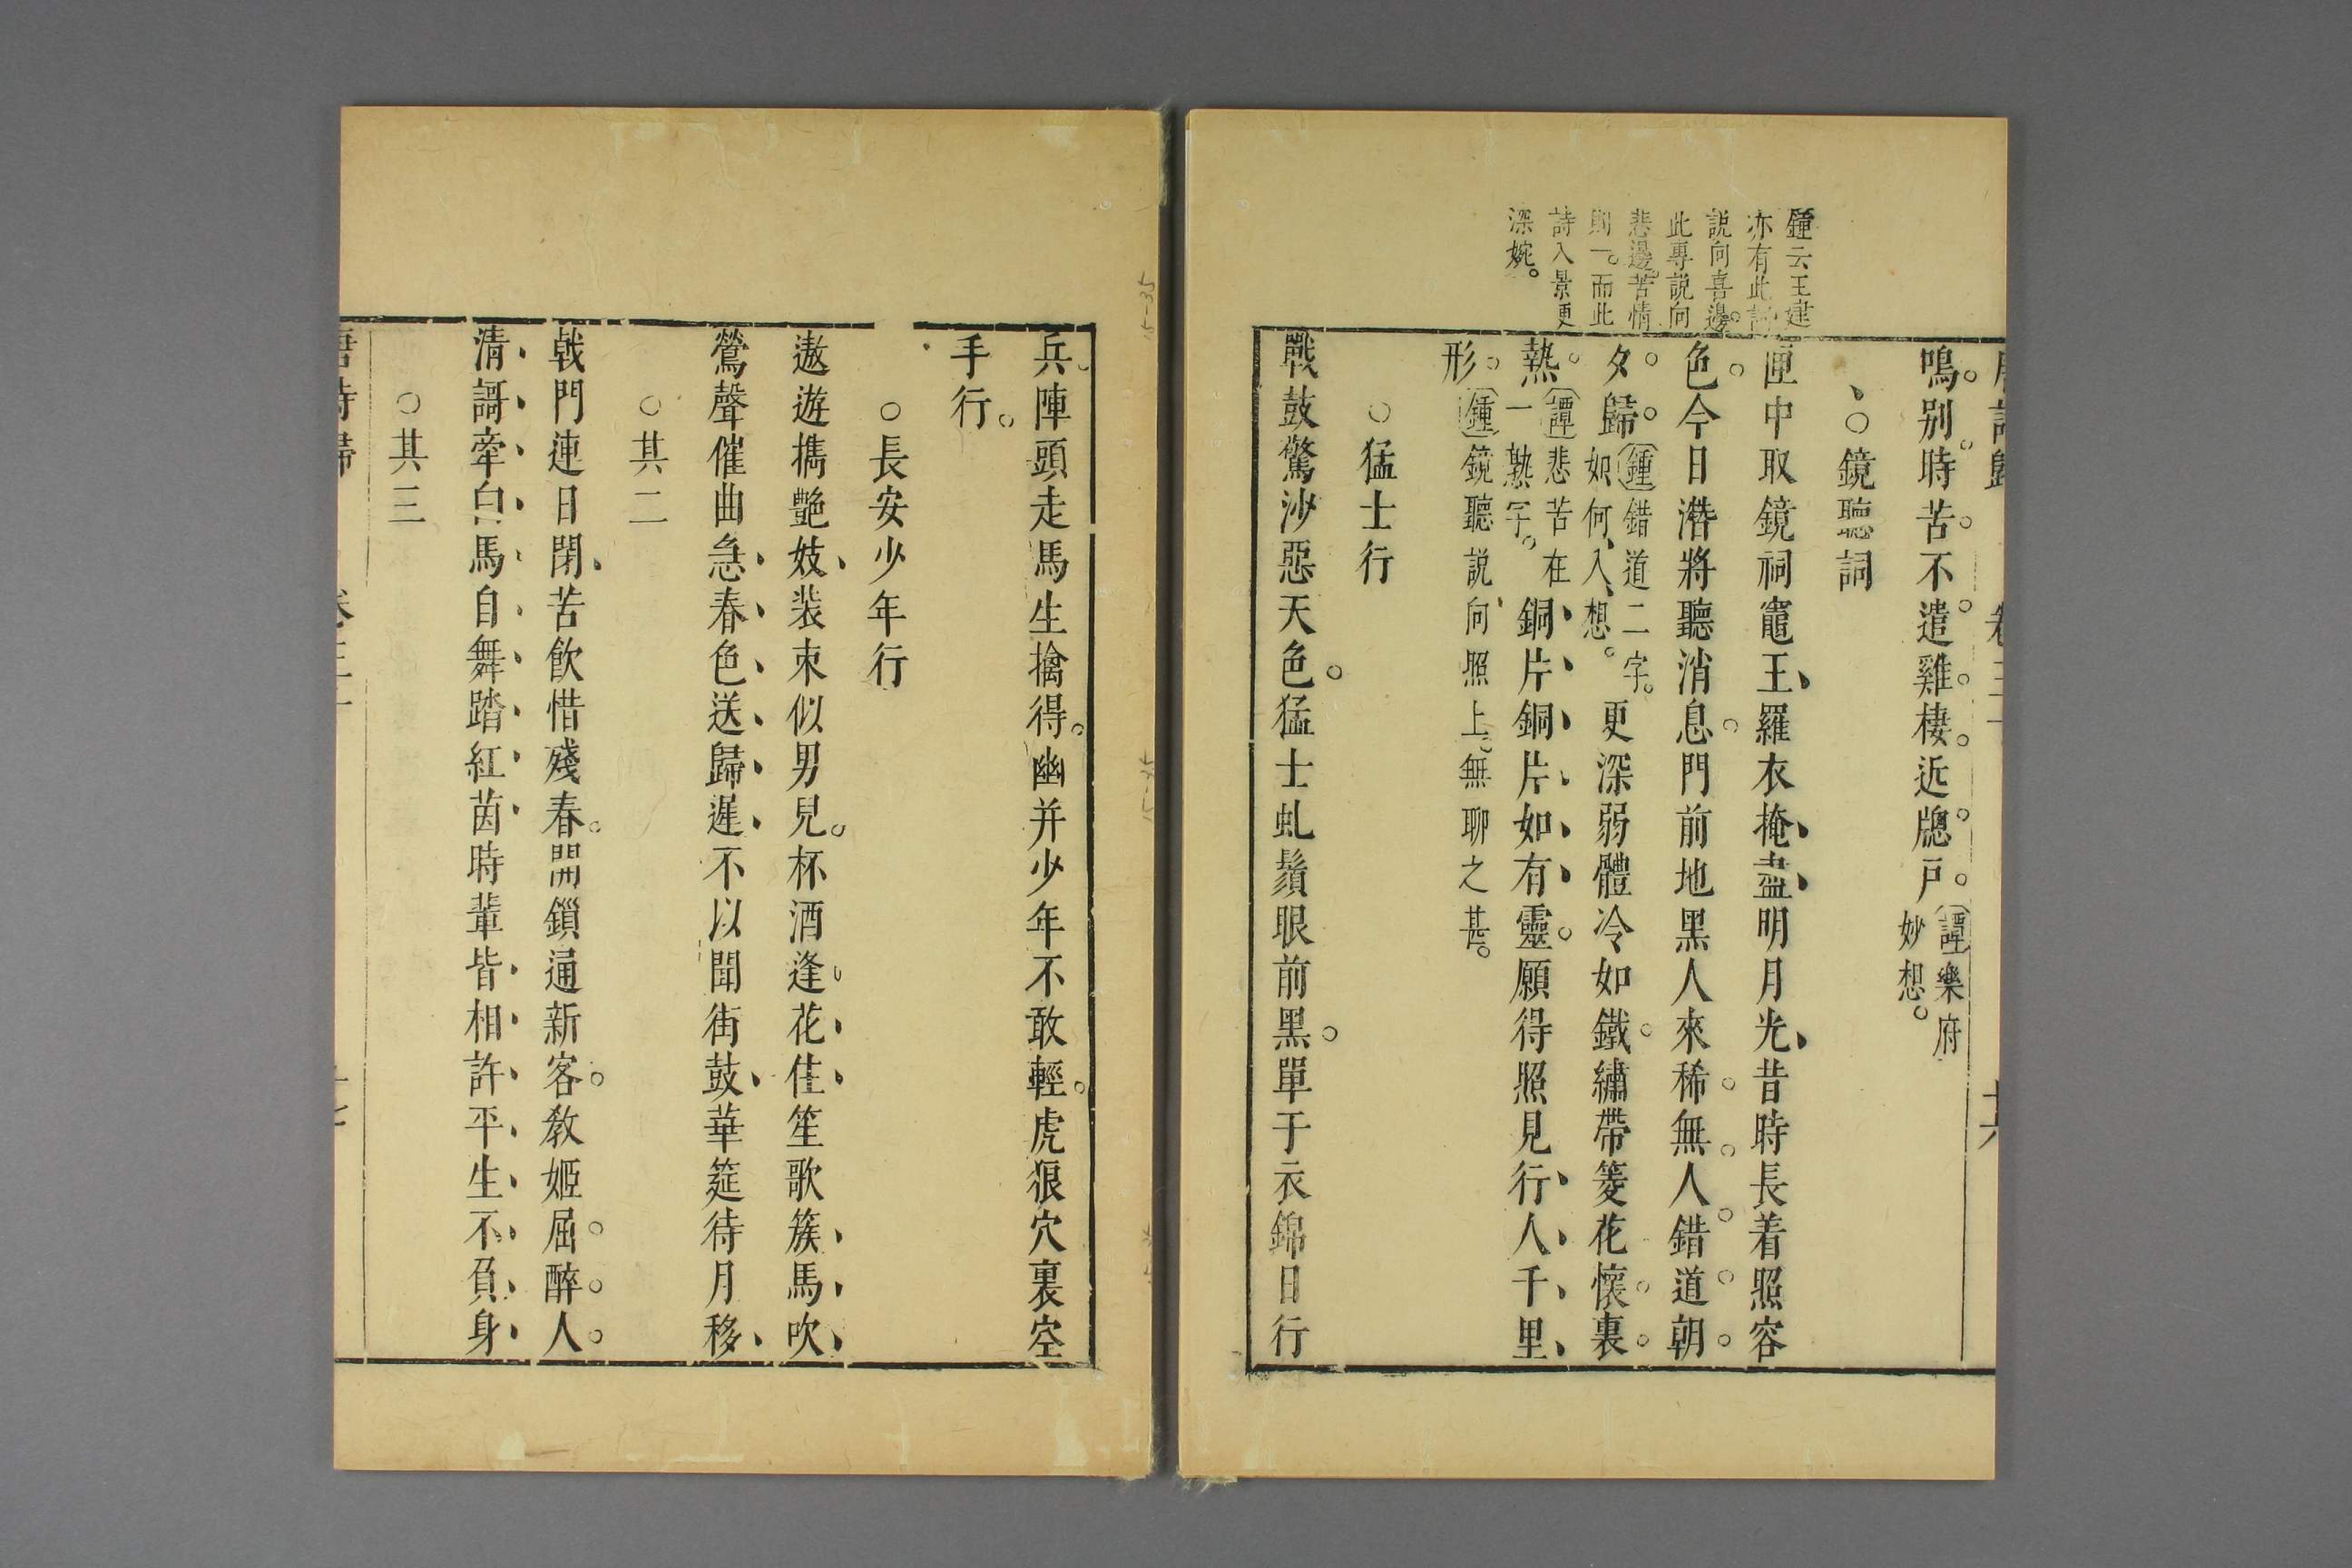 鍾云王建
亦有此詩
説向喜邊
此專説向
悲邊苦情
則一而此
詩入景更
深婉
鳴別時苦不遣雞棲近牕戸
譚樂府
妙想
○鏡聽詞
匣中取鏡祠竈王羅衣掩盡明月光昔時長着照容
色今日潛將聽消息門前地黑人來稀無人錯道朝
夕歸
鍾錯道二字
如何入想
更深弱體冷如鐵繡帶菱花懷裏
熱
譚悲苦在
一熱字
銅片銅片如有靈願得照見行人千里
形
鍾鏡聽説向照上無聊之甚
○猛士行
戰鼓驚沙惡天色猛士虬鬚眼前黑單于衣錦日行
兵陣頭走馬生擒得幽并少年不敢輕虎狼穴裏空
手行
○長安少年行
遨遊攜艶妓装束似男兒杯酒逢花住笙歌簇馬吹
鶯聲催曲急春色送歸遲不以聞街鼓華筵待月移
○其二
戟門連日閉苦飲惜殘春開鎖通新客教姬屈醉人
清謌牽白馬自舞踏紅茵時輩皆相許平生不負身
○其三